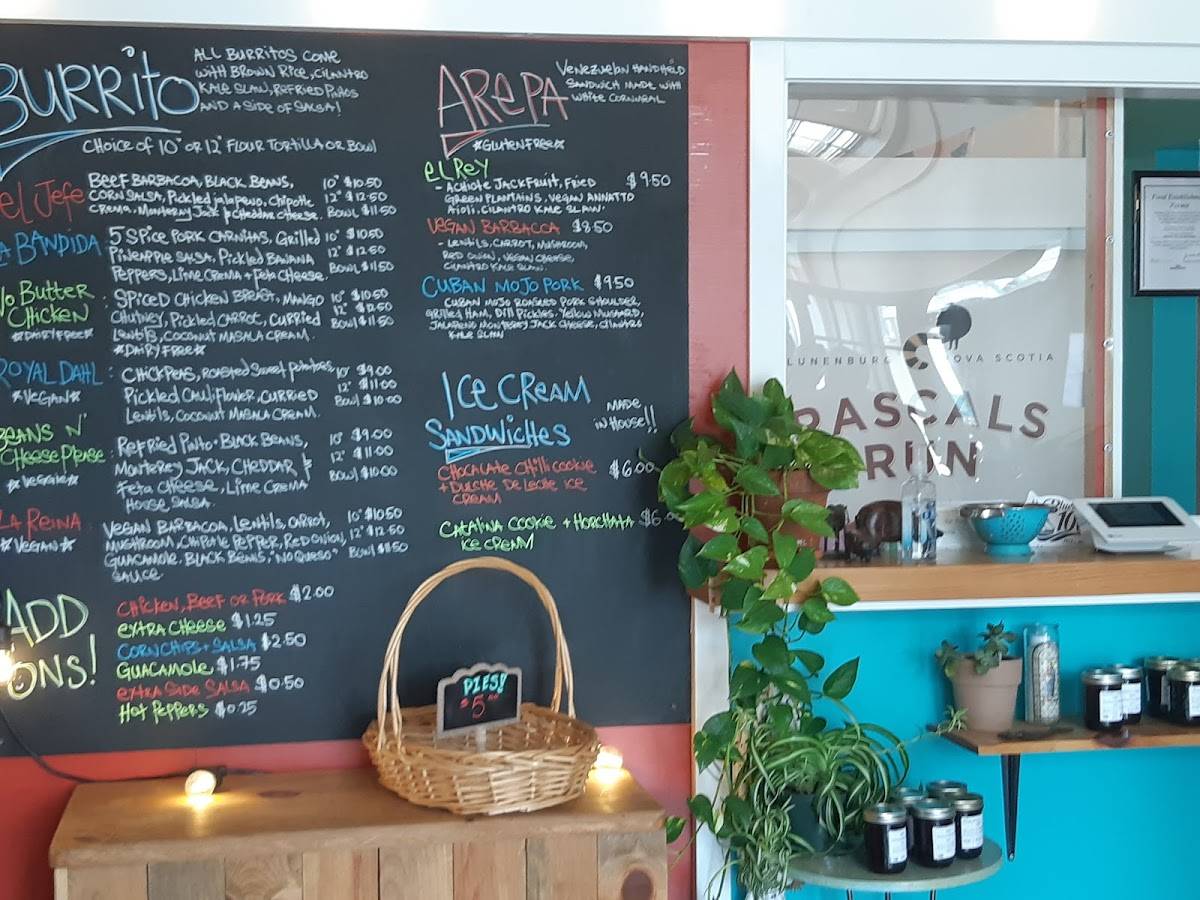 BURRITO
ALL BURRITOS COME
WITH BROWN RICE, CILANTRO
KALE SLAW, REFRIED PINTOS
AND A SIDE OF SALSA!
CHOICE OF 10" OR 12" FLOUR TORTILLA OR BOWL
EL JEFE
BEEF BARBACOA, BLACK BEANS, 10" $10.50
CORN SALSA, PICKLED JALAPENO, CHIPOTLE 12" $12.50
CREMA, MONTERAY JACK & CHEDDAR CHEESE. BOWL $11.50
LA BANDIDA
5 SPICE PORK CARNITAS, GRILLED 10" $10.50
PINEAPPLE SALSA, PICKLED BANANA 12" $12.50
PEPPERS, LIME CREMA + FETA CHEESE BOWL $11.50
NO BUTTER
CHICKEN
*DAIRY FREE*
: SPICED CHICKEN BREAST, MANGO 10" $10.50
CHUTNEY, PICKLED CARROT, CURRIED 12" $12.50
LENTILS, COCONUT MASALA CREAM. BOWL $11.50
*DAIRY FREE*
ROYAL DAHL :
*VEGAN*
CHICKPEAS, ROASTED SWEET POTATOES, 10" $9.00
PICKLED CAULIFLOWER, CURRIED 12" $11.00
LENTILS, COCONUT MASALA CREAM. BOWL $10.00
BEANS N'
CHEESE PLEASE
*VEGGIE*
: REFRIED PINTO + BLACK BEANS, 10" $9.00
MONTEREY JACK, CHEDDAR, & 12" $11.00
FETA CHEESE, LIME CREMA BOWL $10.00
HOUSE SALSA.
LA REINA :
*VEGAN*
VEGAN BARBACOA, LENTILS, CARROT, 10" $10.50
MUSHROOM, CHIPOTLE PEPPER, RED ONION, 12" $12.50
GUACAMOLE, BLACK BEANS, "NO QUESO" BOWL $11.50
SAUCE.
ADD
ONS!
CHICKEN, BEEF OR PORK $2.00
EXTRA CHEESE $1.25
CORN CHIPS + SALSA $2.50
GUACAMOLE $1.75
EXTRA SIDE SALSA $0.50
HOT PEPPERS $0.25
AREPA
VENEZUELAN HANDHELD
SANDWICH MADE WITH
WHITE CORNMEAL
*GLUTEN FREE*
EL REY
- ACHIOTE JACKFRUIT, FRIED $9.50
GREEN PLANTAINS, VEGAN ANNATTO
AIOLI, CILANTRO KALE SLAW.
VEGAN BARBACOA $8.50
- LENTILS, CARROT, MUSHROOM,
RED ONION, VEGAN CHEESE,
CILANTRO KALE SLAW.
CUBAN MOJO PORK $9.50
CUBAN MOJO ROASTED PORK SHOULDER,
GRILLED HAM, DILL PICKLES, YELLOW MUSTARD,
JALAPENO MONTEREY JACK CHEESE, CILANTRO
KALE SLAW
ICE CREAM
SANDWICHES
MADE
IN HOUSE!!
CHOCALATE CHILLI COOKIE $6.00
+ DULCHE DE LECHE ICE
CREAM
CATALINA COOKIE + HORCHATA $6.
ICE CREAM
PIES!
$5.00
LUNENBURG NOVA SCOTIA
RASCALS
RUN
Food Establishment
Permit